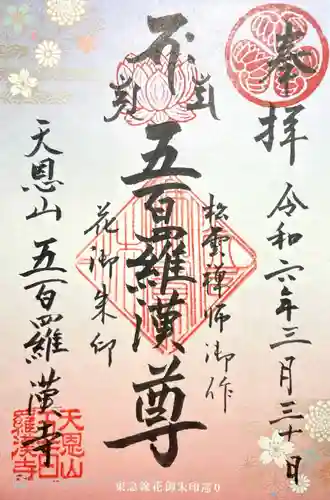 奉拝
令和六年三月三十日
松雲禅師御作
五百羅漢尊
花御朱印
天恩山 五百羅漢寺
天恩山五百羅漢寺
東急線花御朱印巡り